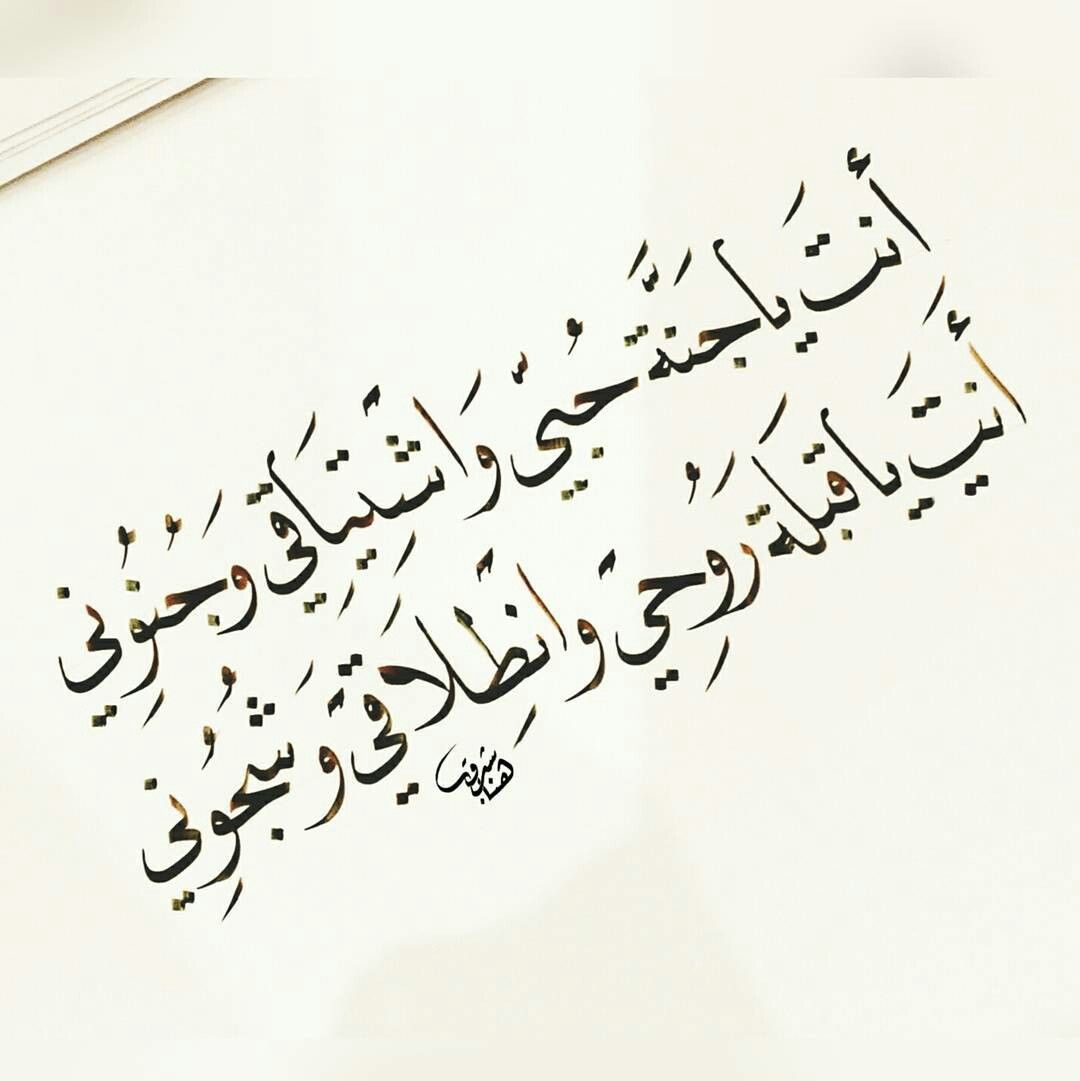 أنتَ يا جَنَّةَ حُبيّ وَاشْتِيَاقي وَجُنُوُني
أنتَ يا قبلَة رَوُحِي وَانْطِلَاقي وَشُجُوُني